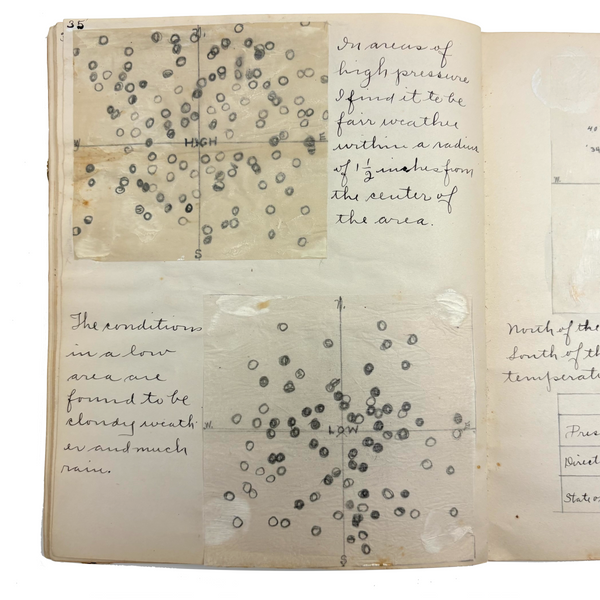 35
N
W
HIGH
E
S
In areas of
high pressure
I find it to be
fair weather
within a radius
of 1 1/2 inches from
the center of
the area.
The conditions
in a low
area are
found to be
cloudy weath
er and much
rain.
N.
W.
LOW
E
S
40
34
W
North of the
South of th
temperatu
Pres
Direct
State o